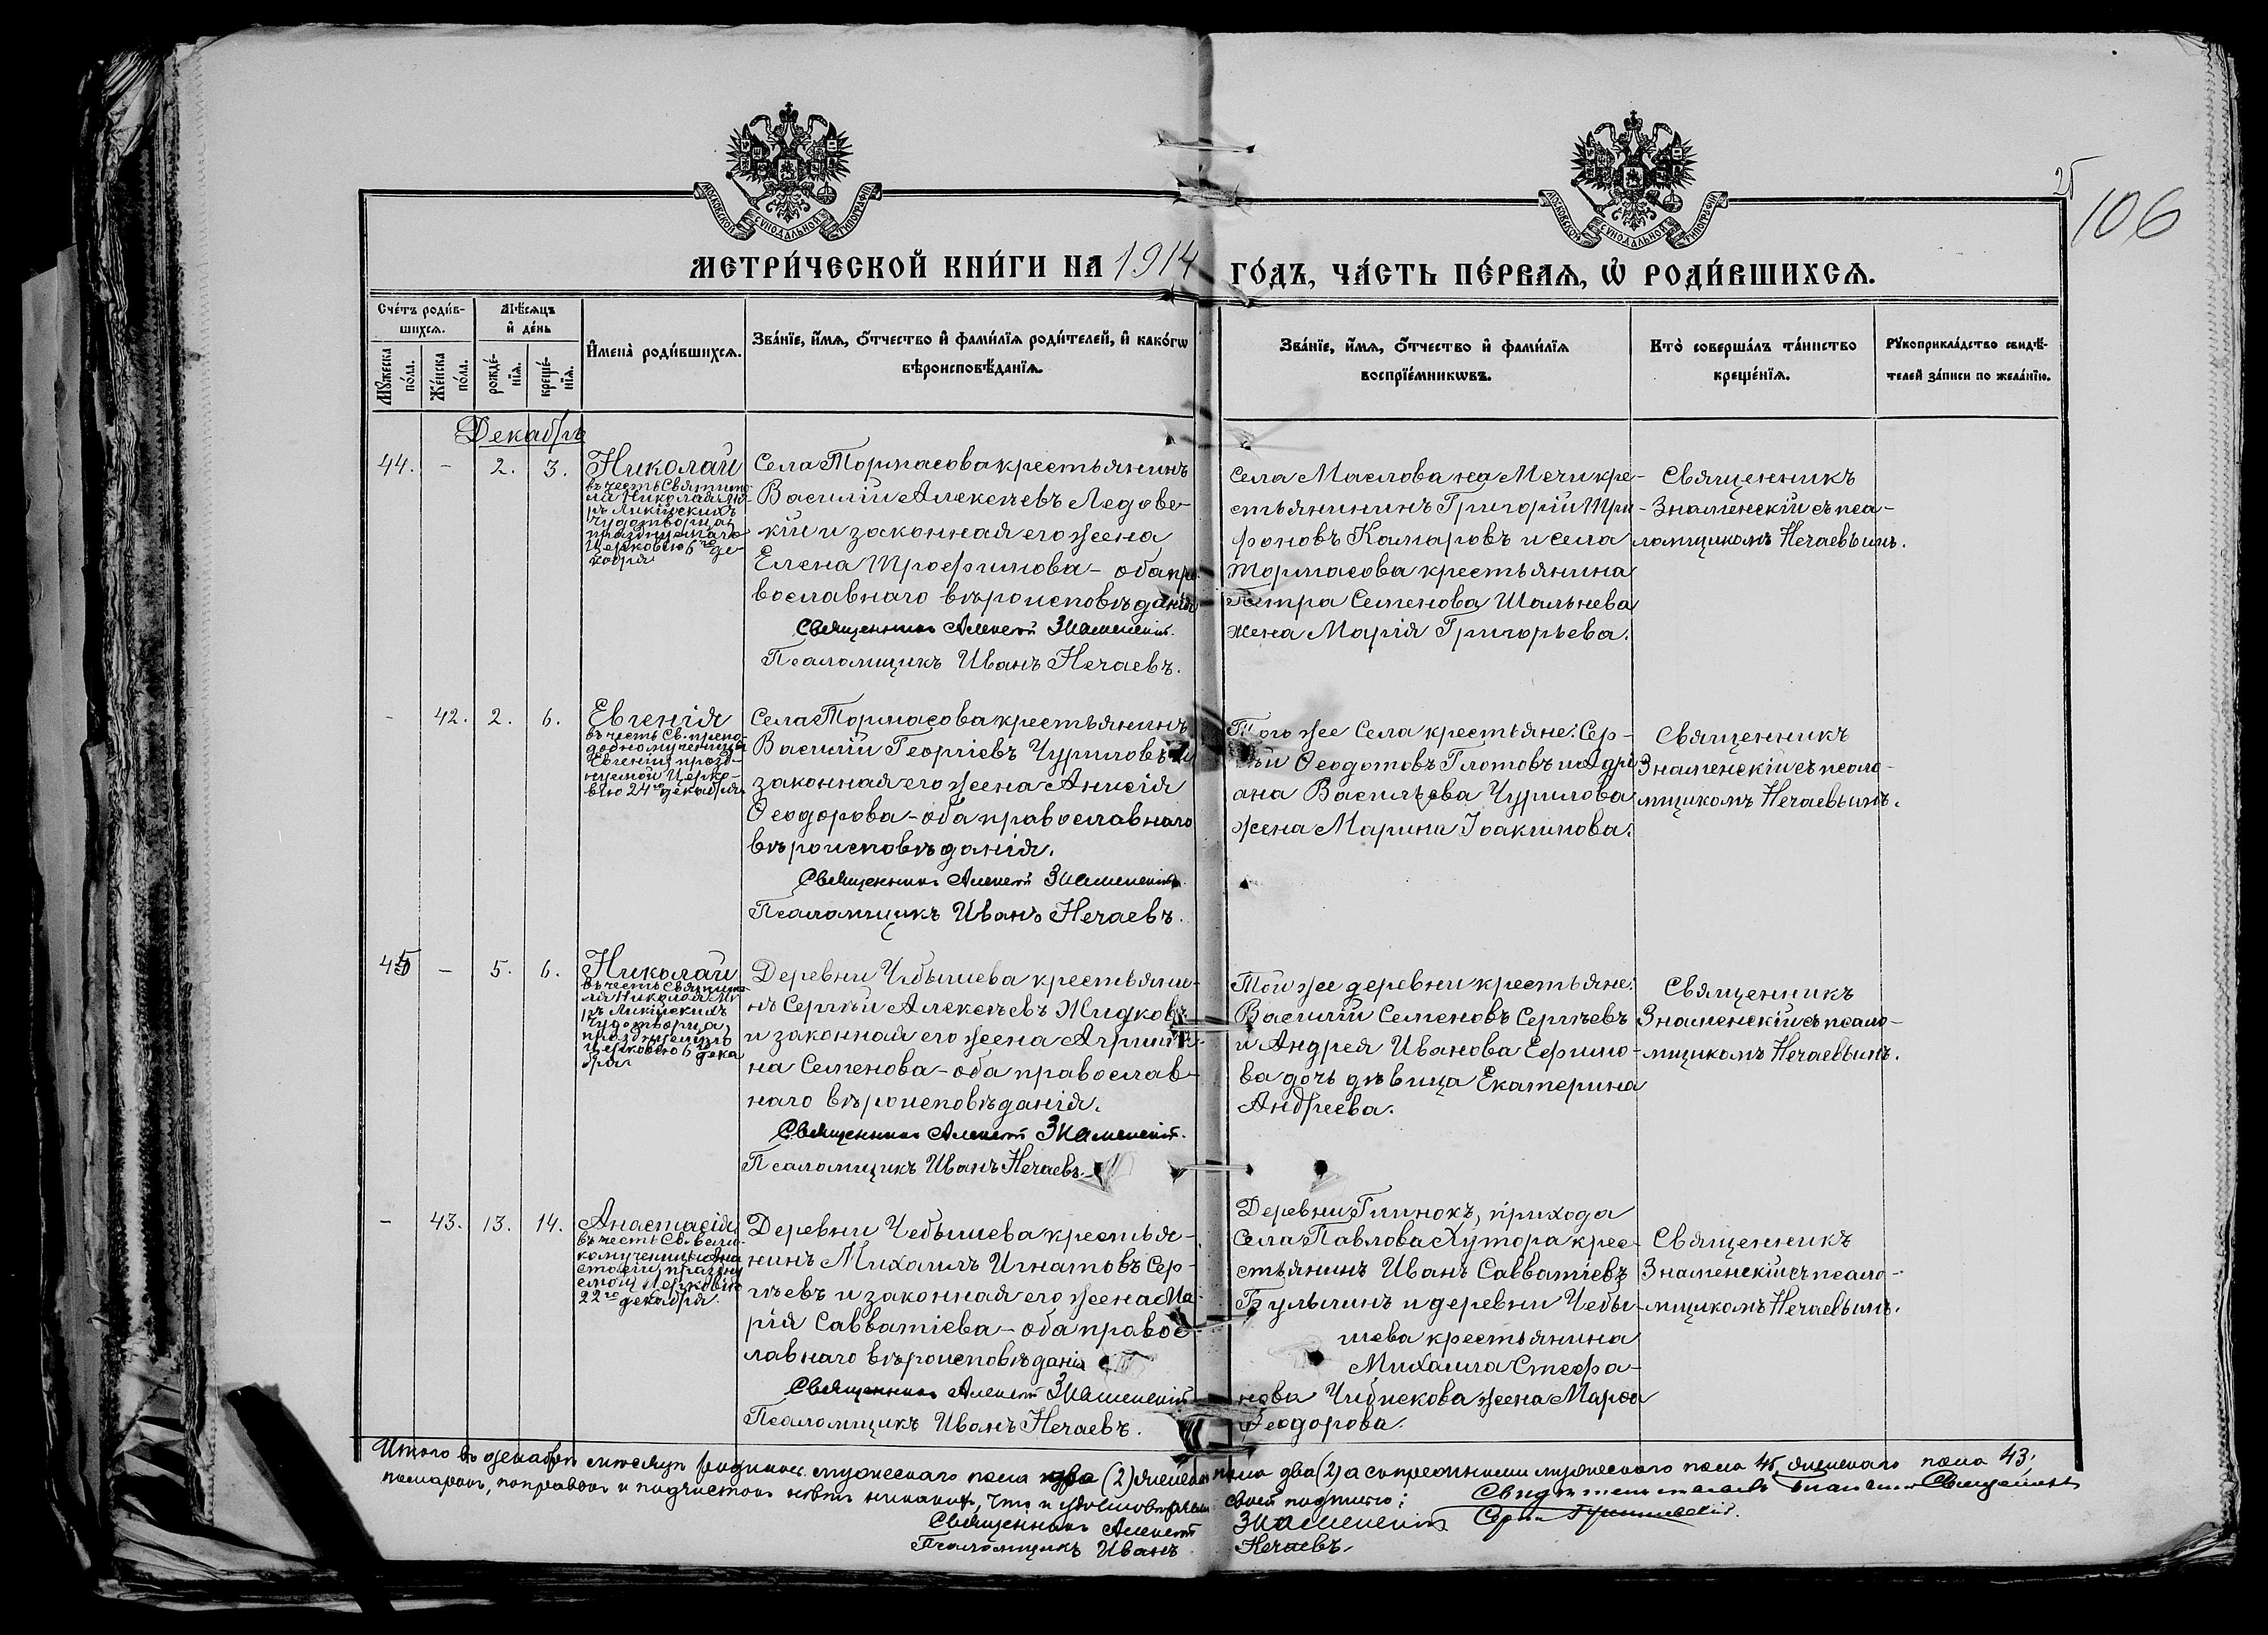 МОСКОВСКОЙ СѴНОДАЛЬНОЙ ТИПОГРАФІИ
МОСКОВСКОЙ СѴНОДАЛЬНОЙ ТИПОГРАФІИ
25
106
МЕТРИ́ЧЕСКОЙ КНИ́ГИ НА 1914 ГО́ДЪ, ЧА́СТЬ ПЕ́РВАЯ, Ѽ РОДИ́ВШИХСЯ.
Сче́тъ роди́в-
шихся.
Мѣ́сяцъ
и҆ де́нь
Мꙋ́жеска
по́ла.
Же́нска
по́ла.
рожде́-
нїя.
креще́-
нїя.
И҆мена̀ роди́вшихся.
Зва́нїе, и҆́мя, ѻ҆́тчество и҆ фами́лїя роди́телей, и҆ како́гѡ
вѣроисповѣ́данїя.
Зва́нїе, и҆́мя, ѻ҆́тчество и҆ фами́лїя
воспрїе́мникѡвъ.
Кто̀ соверша́лъ та́инство
креще́нїя.
Рꙋкоприкла́дство свидѣ́-
телей за́писи по жела́нїю.
Декабрь
44.
-
2.
3.
Николай
въ честь Святите-
ля Николая Ми-
ръ Ликійскихъ
Чудотворца,
празднуемаго
Церковію 6го де-
кабря
Села Тормасова крестьянинъ
Василій Алексѣевъ Ледовс-
кій и законная его жена
Елена Трофимова - оба пра-
вославнаго вѣроисповѣданія
Священникъ Алексѣй Знаменскій.
Псаломщикъ Иванъ Нечаевъ.
Села Маслова на Мечи кре-
стьянинъ Григорій Три-
фоновъ Комаровъ и села
Тормасова крестьянина
Петра Семенова Шальнева
жена Марія Григорьева.
Священникъ
Знаменскій съ пса-
ломщикомъ Нечаевымъ.
-
42.
2.
6.
Евгенія
въ честь Св. препо-
добномученицы
Евгеніи, празд-
нуемой Церко-
вію 24го декабря
Села Тормасова крестьянинъ
Василій Георгіевъ Чуриловъ и
законная его жена Анисія
Ѳеодорова - оба православнаго
вѣроисповѣданія.
Священникъ Алексѣй Знаменскій.
Псаломщикъ Иванъ Нечаевъ.
Того же Села крестьяне: Сер-
гѣй Ѳеодотовъ Глотовъ и Адрі
ана Васильева Чурилова
жена Марина Іоакимова.
Священникъ
Знаменскій съ псало-
мщикомъ Нечаевымъ.
45
-
5.
6.
Николай
въ честь Святите-
ля Николая Ми-
ръ Ликійскихъ
Чудотворца,
празднуемаго
Церковію 6го дека
бря
Деревни Чебышева крестьяни-
нъ Сергѣй Алексѣевъ Жидковъ
и законная его жена Агрипи-
на Семенова - оба православ-
наго вѣроисповѣданія.
Священникъ Алексѣй Знаменскій.
Псаломщикъ Иванъ Нечаевъ.
Той же деревни крестьяне:
Василій Семеновъ Сергѣевъ
и Андрея Иванова Ефимо-
ва дочь дѣвица Екатерина
Андреева.
Священникъ
Знаменскій съ псало-
мщикомъ Нечаевымъ.
-
43.
13.
14.
Анастасія
въ честь Св. Вели-
комученицы Ана
стасіи, праздну
емой Церковію
22го декабря.
Деревни Чебышева крестья-
нинъ Михаилъ Игнатовъ Сер-
гѣевъ и законная его жена Ма-
рія Савватіева - оба правос-
лавнаго вѣроисповѣданія
Священникъ Алексѣй Знаменскій
Псаломщикъ Иванъ Нечаевъ.
Деревни прихода
Села Павлова Хутора крес-
стьянинъ Иванъ Савватіевъ
Булычинъ и деревни Чебы-
шева крестьянина
Михаила Стефа-
нова жена Марѳа
Ѳеодорова.
Священникъ
Знаменскій съ псало-
мщикомъ Нечаевымъ.
Итого въ декабрѣ мѣсяцѣ родилось мужескаго пола два (2) женскаго пола два (2) а съ прежними мужескаго пола 45, женскаго пола 43;
помарокъ, поправокъ и подчистокъ нѣтъ никакихъ, что и удостовѣряемъ своей подписью:
Священникъ Алексѣй Знаменскій
Псаломщикъ Иванъ Нечаевъ.
Священникъ